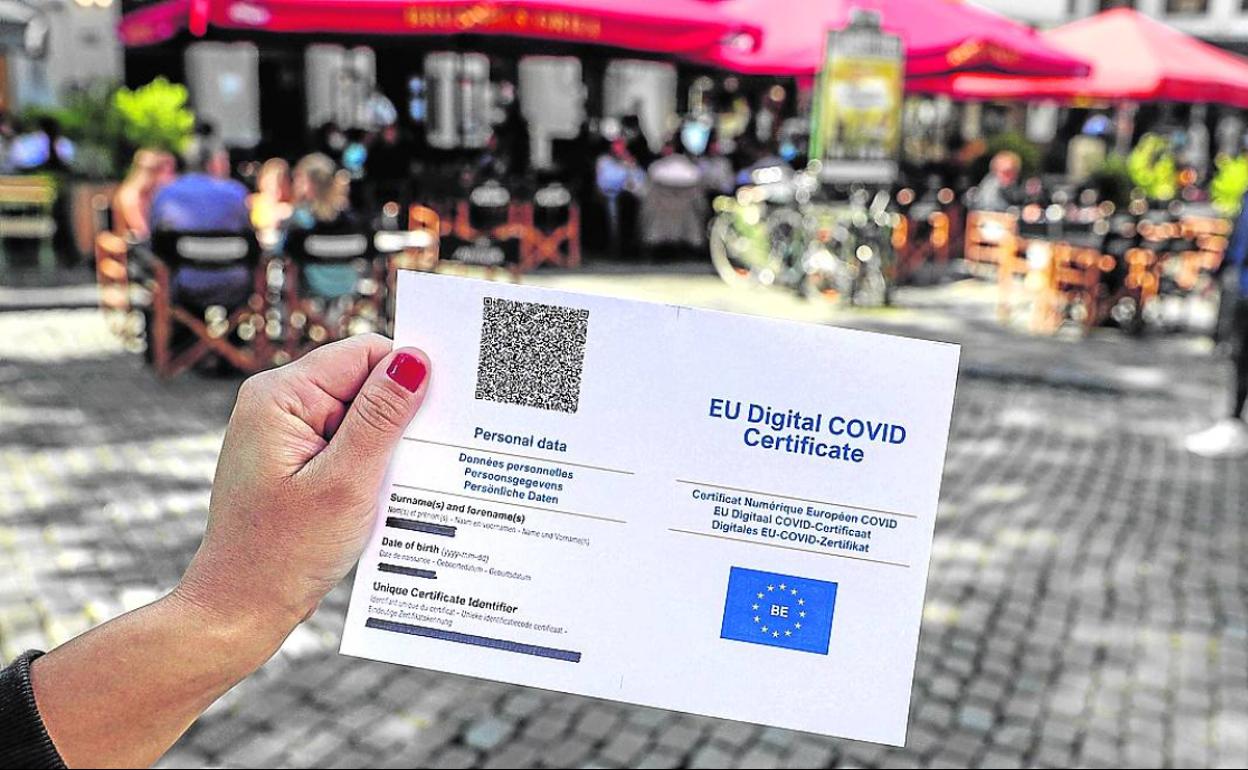 Personal data
Données personnelles
Persoonsgegevens
Persönliche Daten
Surname(s) and forename(s)
Nom(s) et prénom(s) - Naam en voornamen - Name und Vorname(n)
Date of birth (yyyy-mm-dd)
Date de naissance - Geboortedatum - Geburtsdatum
Unique Certificate Identifier
Identifiant unique du certificat - Unieke identificatiecode certificaat -
Eindeutige Zertifikatskennung
EU Digital COVID
Certificate
Certificat Numérique Européen COVID
EU Digitaal COVID-Certificaat
Digitales EU-COVID-Zertifikat
BE